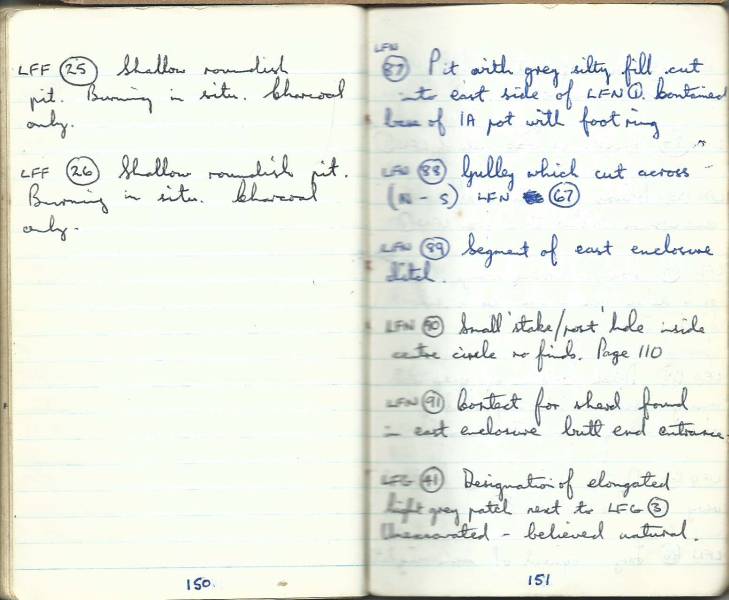 LFF 25 Shallow roundish
pit. Burning in situ. Charcoal
only.
LFF 26 Shallow roundish pit.
Burning in situ. Charcoal
only.
150.
LFN
87 Pit with grey silty fill cut
into east side of LFN 1. Contained
base of IA pot with foot ring
LFN 88 Gulley which cut across
(N - S) LFN 67
LFN 89 Segment of east enclosure
ditch.
LFN 90 Small 'stake/post' hole inside
centre circle no finds. Page 110
LFN 91 Context for sherd found
in east enclosure butt end entrance.
LFG 41 Designation of elongated
light grey patch next to LFG 3
Unexcavated - believed natural.
151